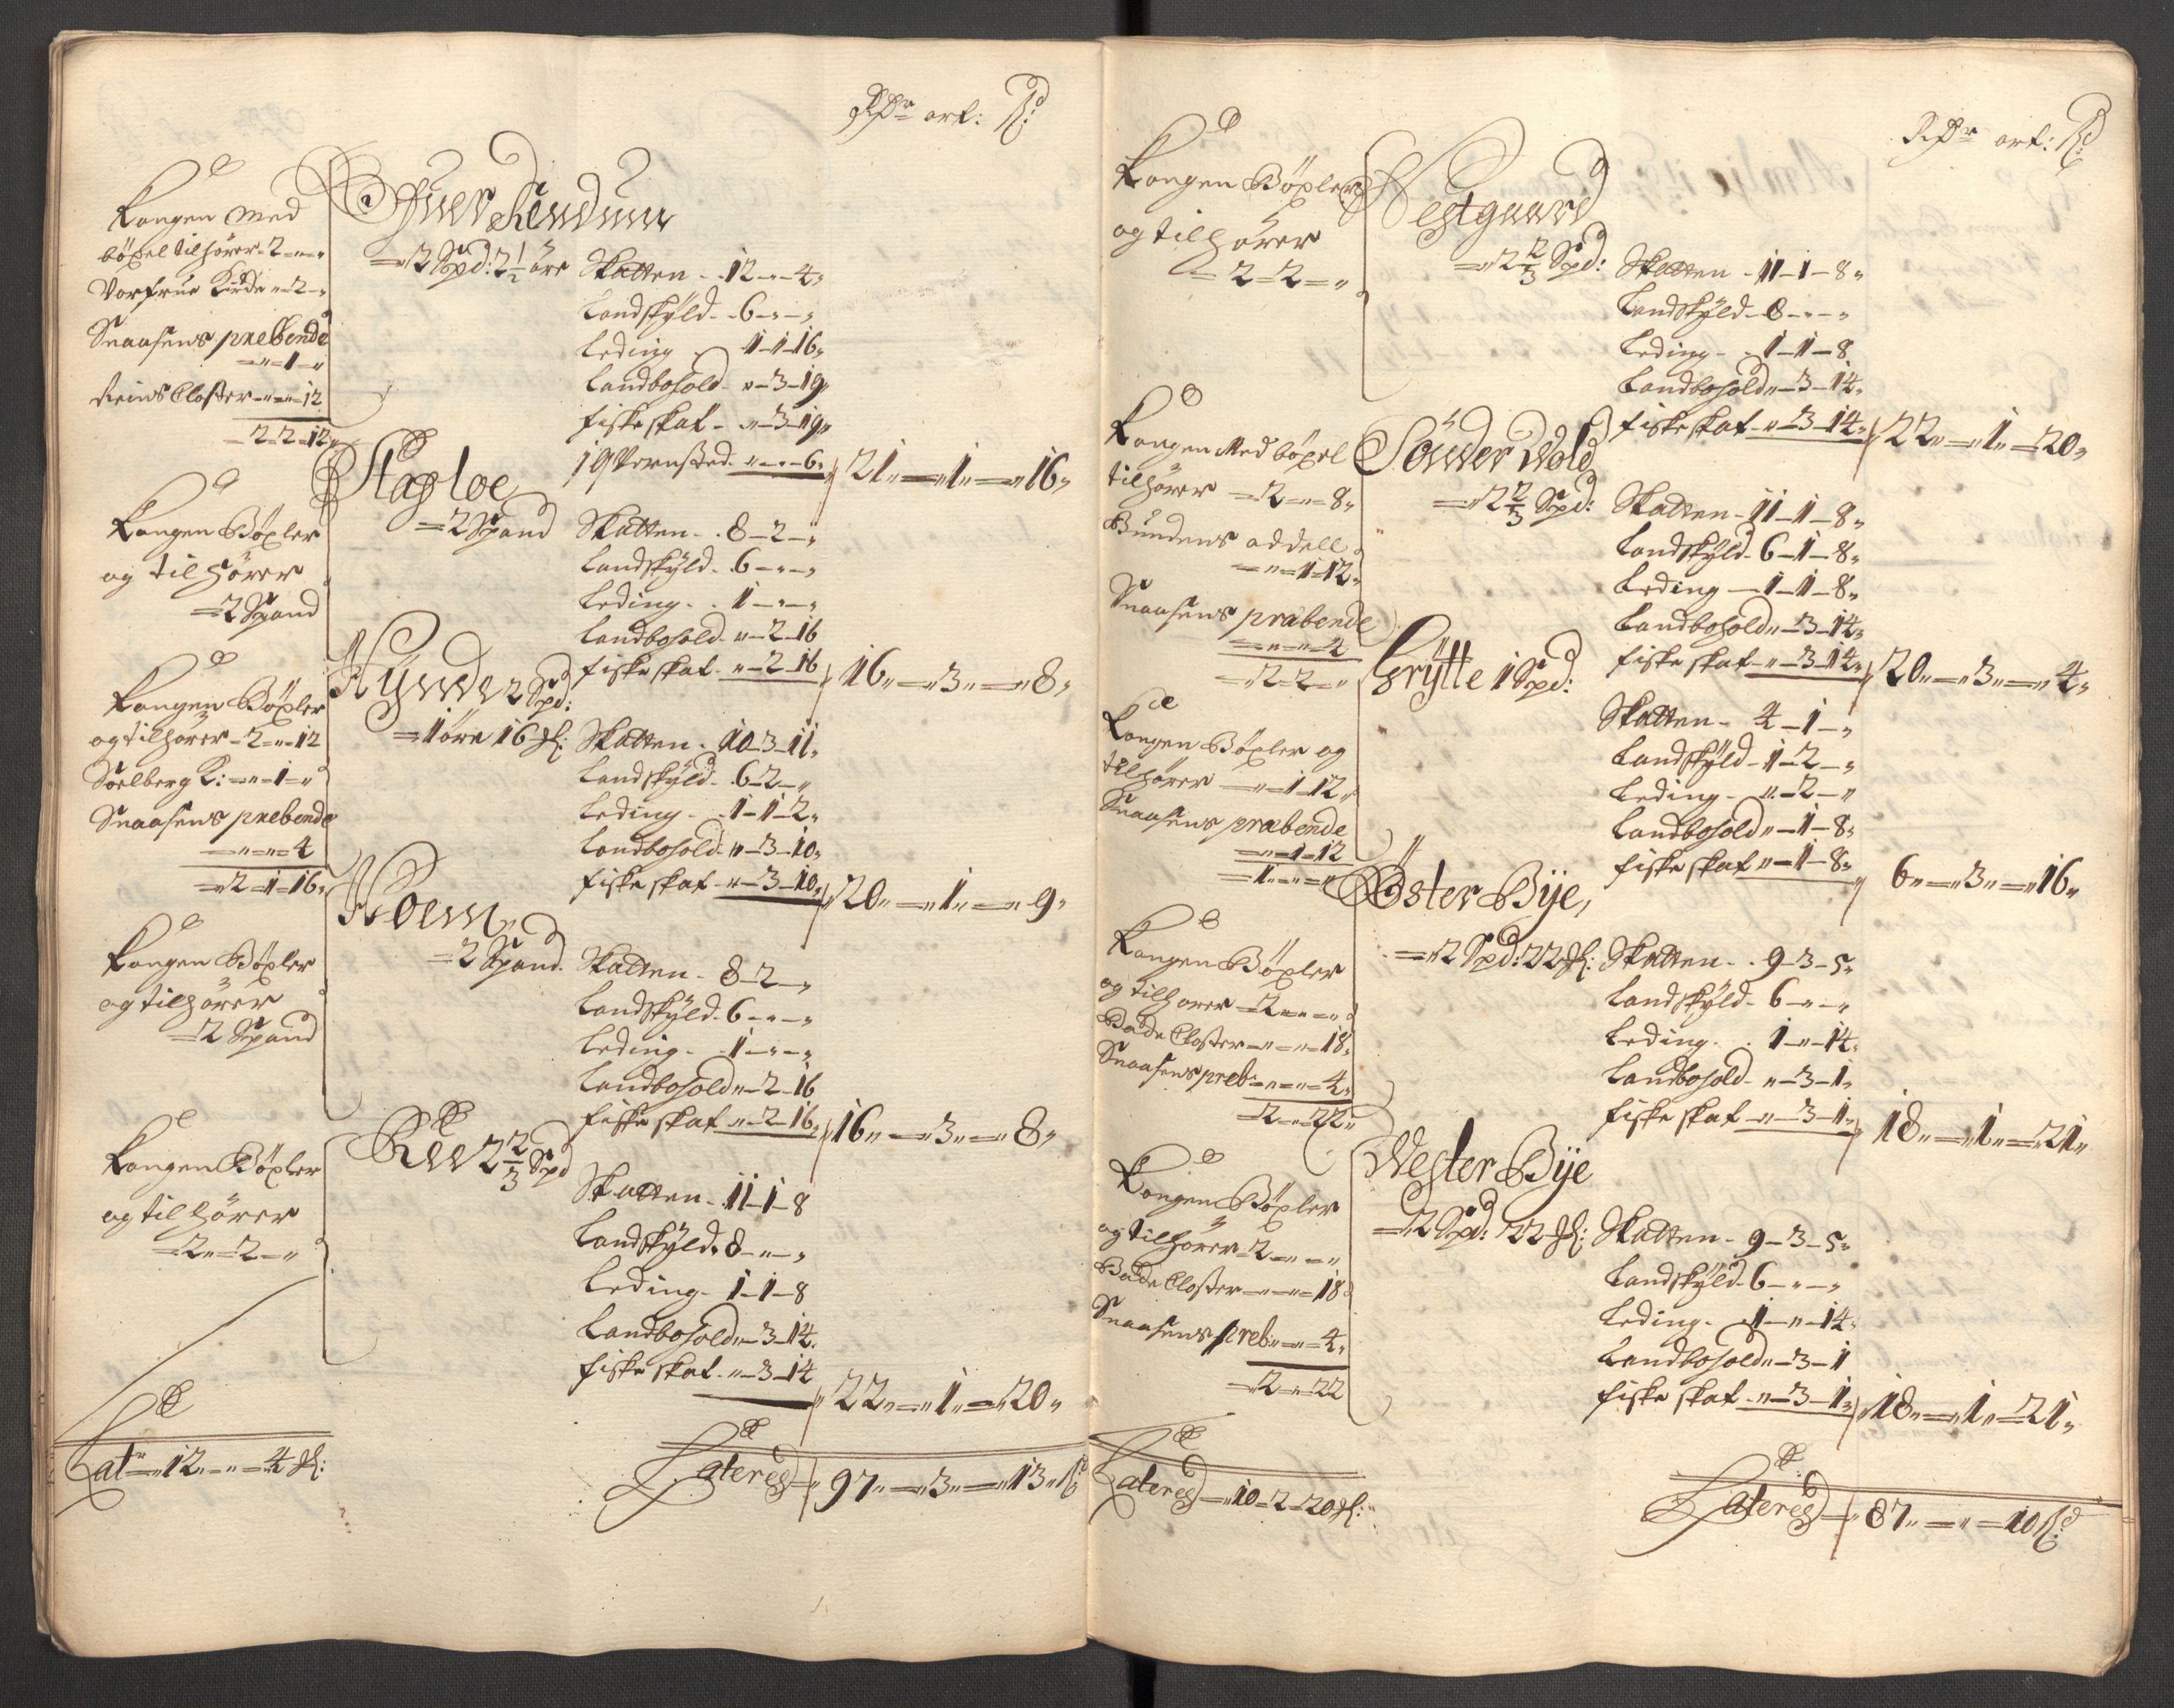 RDr ort: ß
Kongen med
böxel tilhører 2 - " - "
Vorfrue Kircke " - 2 - "
Snaasens prebende
= " = 1 = "
Reins Closter - " - " - 12
2 - 2 - 12
Ofuer Rendum
= 2 Spd: 2½ öre
Skatten - 12 - " - 4
Landskyld - 6 - " - "
Leding - 1 - 1 - 16
Landbohold - " - 3 - 19
fiskeskat - " - 3 - 19
" - " - 6 21 " = 1 " = 16
Kongen Böxler
og tilhörer
= 2 Spand
Stagloe
= 2 Spand
Skatten - 8 - 2 - "
Landskyld - 6 - " - "
Leding - 1 - " - "
Landbohold " - 2 - 16
fiskeskat - " - 2 - 16 16 " = 3 " = 8
Kongen Böxler
og tilhører - 2 = " - 12
Soelberg K: = " - 1 - "
Snaasens prebende
= " = " = 4
= 2 = 1 = 16
2 Spd:
= 1 öre 16 ℳ:
Skatten - 10 - 3 - 11
Landskyld - 6 - 2 - "
Leding - 1 - 1 - 2
Landbohold - " - 3 - 10
fiskeskat - " - 3 - 10 20 " = 1 " = 9
Kongen Böxler
og tilhörer
= 2 Spand
Hoem
= 2 Spand
Skatten - 8 - 2 - "
Landskyld - 6 - " - "
Leding - 1 - " - "
Landbohold " - 2 - 16
fiskeskat - " - 2 - 16 16 " = 3 " = 8
Kongen Böxler
og tilhörer
= 2 " = 2 = "
2⅔ Spd
Skatten - 11 - 1 - 8
Landskyld - 8 - " - "
Leding - 1 - 1 - 8
Landbohold " - 3 - 14
fiskeskat - " - 3 - 14
22 " = 1 " = 20
Lat = 12 " = " = 4 ℳ:
Lateris 97 " = 3 " = 13 ß
RDr ort: ß
Kongen Böxler
og tilhører
= 2 = 2 = "
Westgaard
= 2⅔ Spd:
Skatten - 11 - 1 - 8
Landskyld - 8 - " - "
Leding - 1 - 1 - 8
Landbohold " - 3 - 14
fiskeskat - " - 3 - 14 22 " = 1 " = 20
Kongen Med böxel
tilhører = 2 = " = 8
Bundens oddell
= " = 1 = 12
Snaasens præbende
= " = " = 4
= 2 = 2 = "
Sönder Wold
= 2⅔ Spd:
Skatten - 11 - 1 - 8
Landskyld - 6 - 1 - 8
Leding - 1 - 1 - 8
Landbohold " - 3 - 14
fiskeskat - " - 3 - 14 20 " = 3 " = 4
Kongen Böxler og
tilhører = " = 1 - 12
Snaasens præbende
= " = 1 = 12
= 1 = " = "
Grytte 1 Spd:
Skatten - 4 - 1 - "
Landskyld - 1 - 2 - "
Leding - " - 2 - "
Landbohold " - 1 - 8
fiskeskat " - 1 - 8 6 " = 3 " = 16
Kongen Böxler
og tilhörer = 2 = " = "
Bade Closter = " = " = 18
Snaasens preb = " = " = 4
2 = " = 22
Öster Bye,
= 2 Spd: 22 ℳ:
Skatten - 9 - 3 - 5
Landskyld - 6 - " - "
Leding - 1 - " - 14
Landbohold - " - 3 - 1
fiskeskat - " - 3 - 1 18 " = 1 " = 21
Kongen Böxler
og tilhörer = 2 = " = "
Bade Closter = " = " = 18
Snaasens preb: = " = 4
= 2 = " = 22
Wester Bye
= 2 Spd: 22 ℳ:
Skatten - 9 - 3 - 5
Landskyld - 6 - " - "
Leding - 1 - " - 14
Landbohold " - 3 - 1
fiskeskat - " - 3 - 1 18 " = 1 " = 21
Lateris = 10 = 2 = 20 ℳ:
Lateris 87 " = " = 10 ß